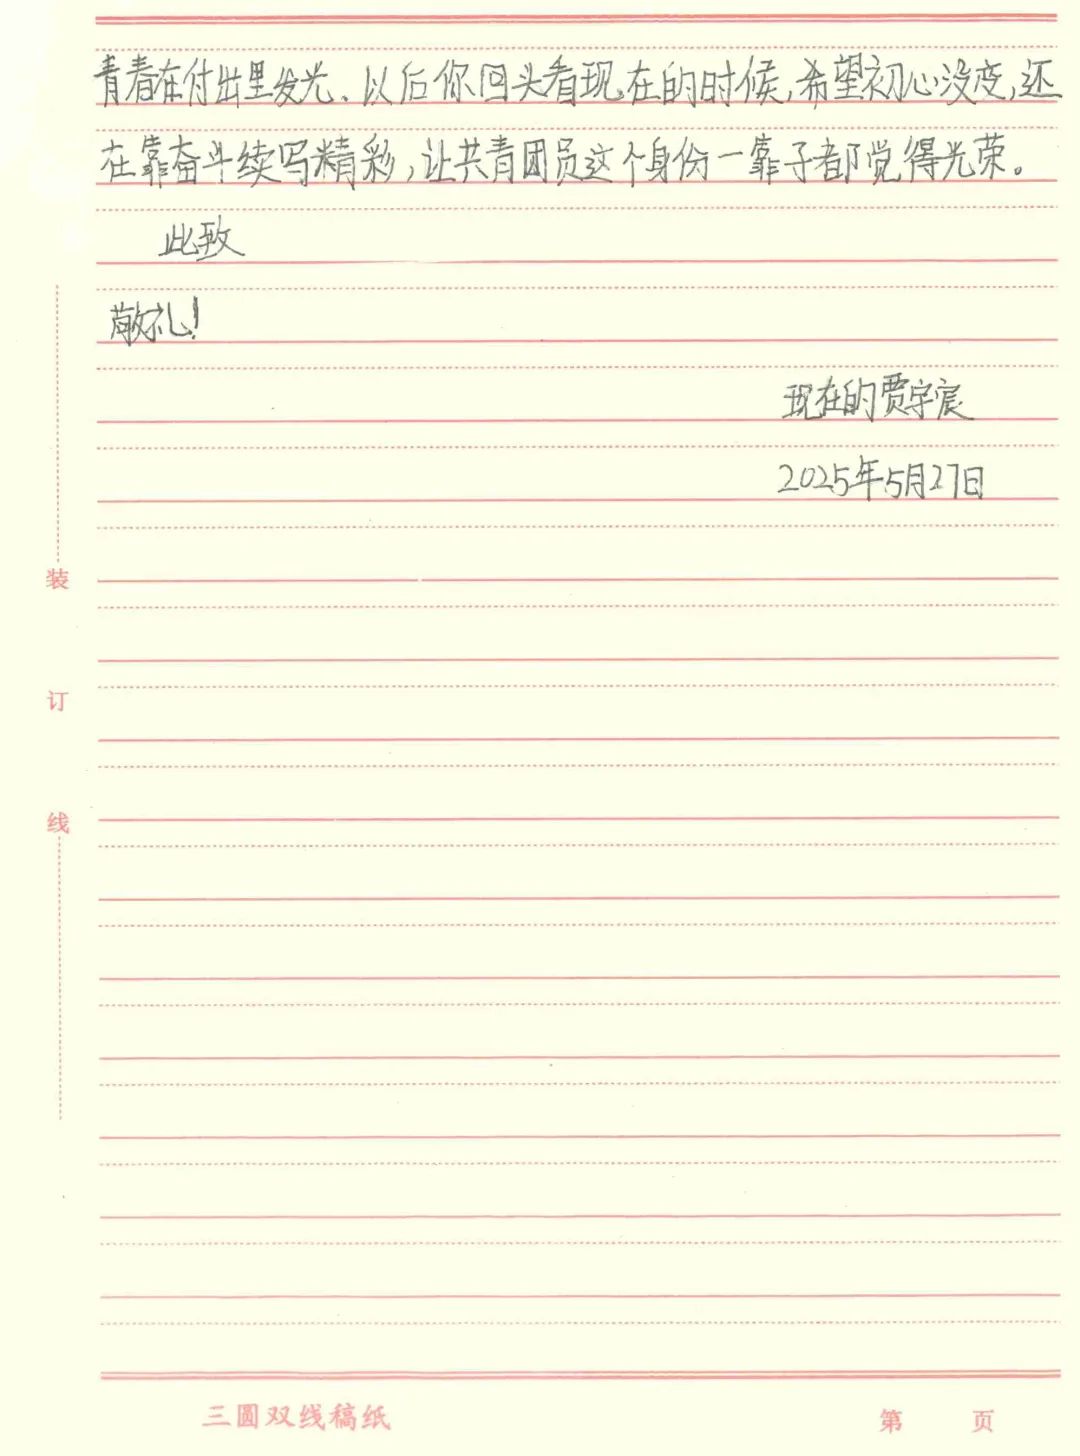 青春在付出里发光、以后你回头看现在的时候,希望初心没变,还
在靠奋斗续写精彩,让共青团员这个身份一靠子都觉得光荣。
此致
敬礼!
现在的贾宇宸
2025年5月27日
装
订
线
三圆双线稿纸
第 页